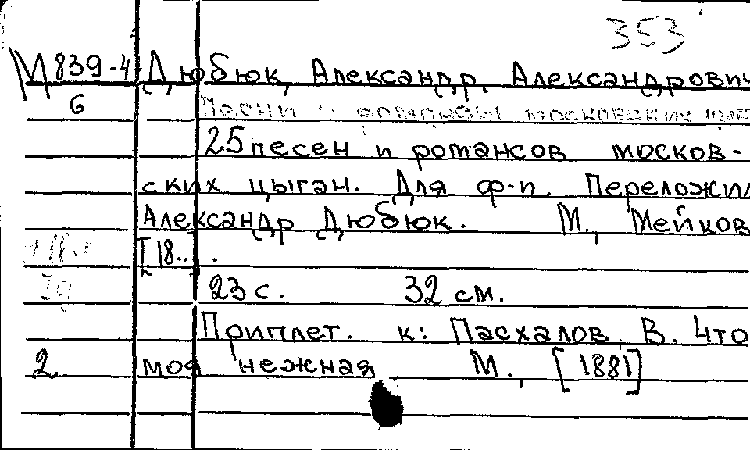 353
М839-4 Дюбюк, Александр Александрович
6 Песни и романсы московских
25 песен и романсов москов-
ских цыган. Для ф-п. Переложил
Александр Дюбюк. М., Мейков
[18..].
23 с. 32 см.
Приплет. к: Пасхалов, В. Что
2. моя нежная М., [1881]